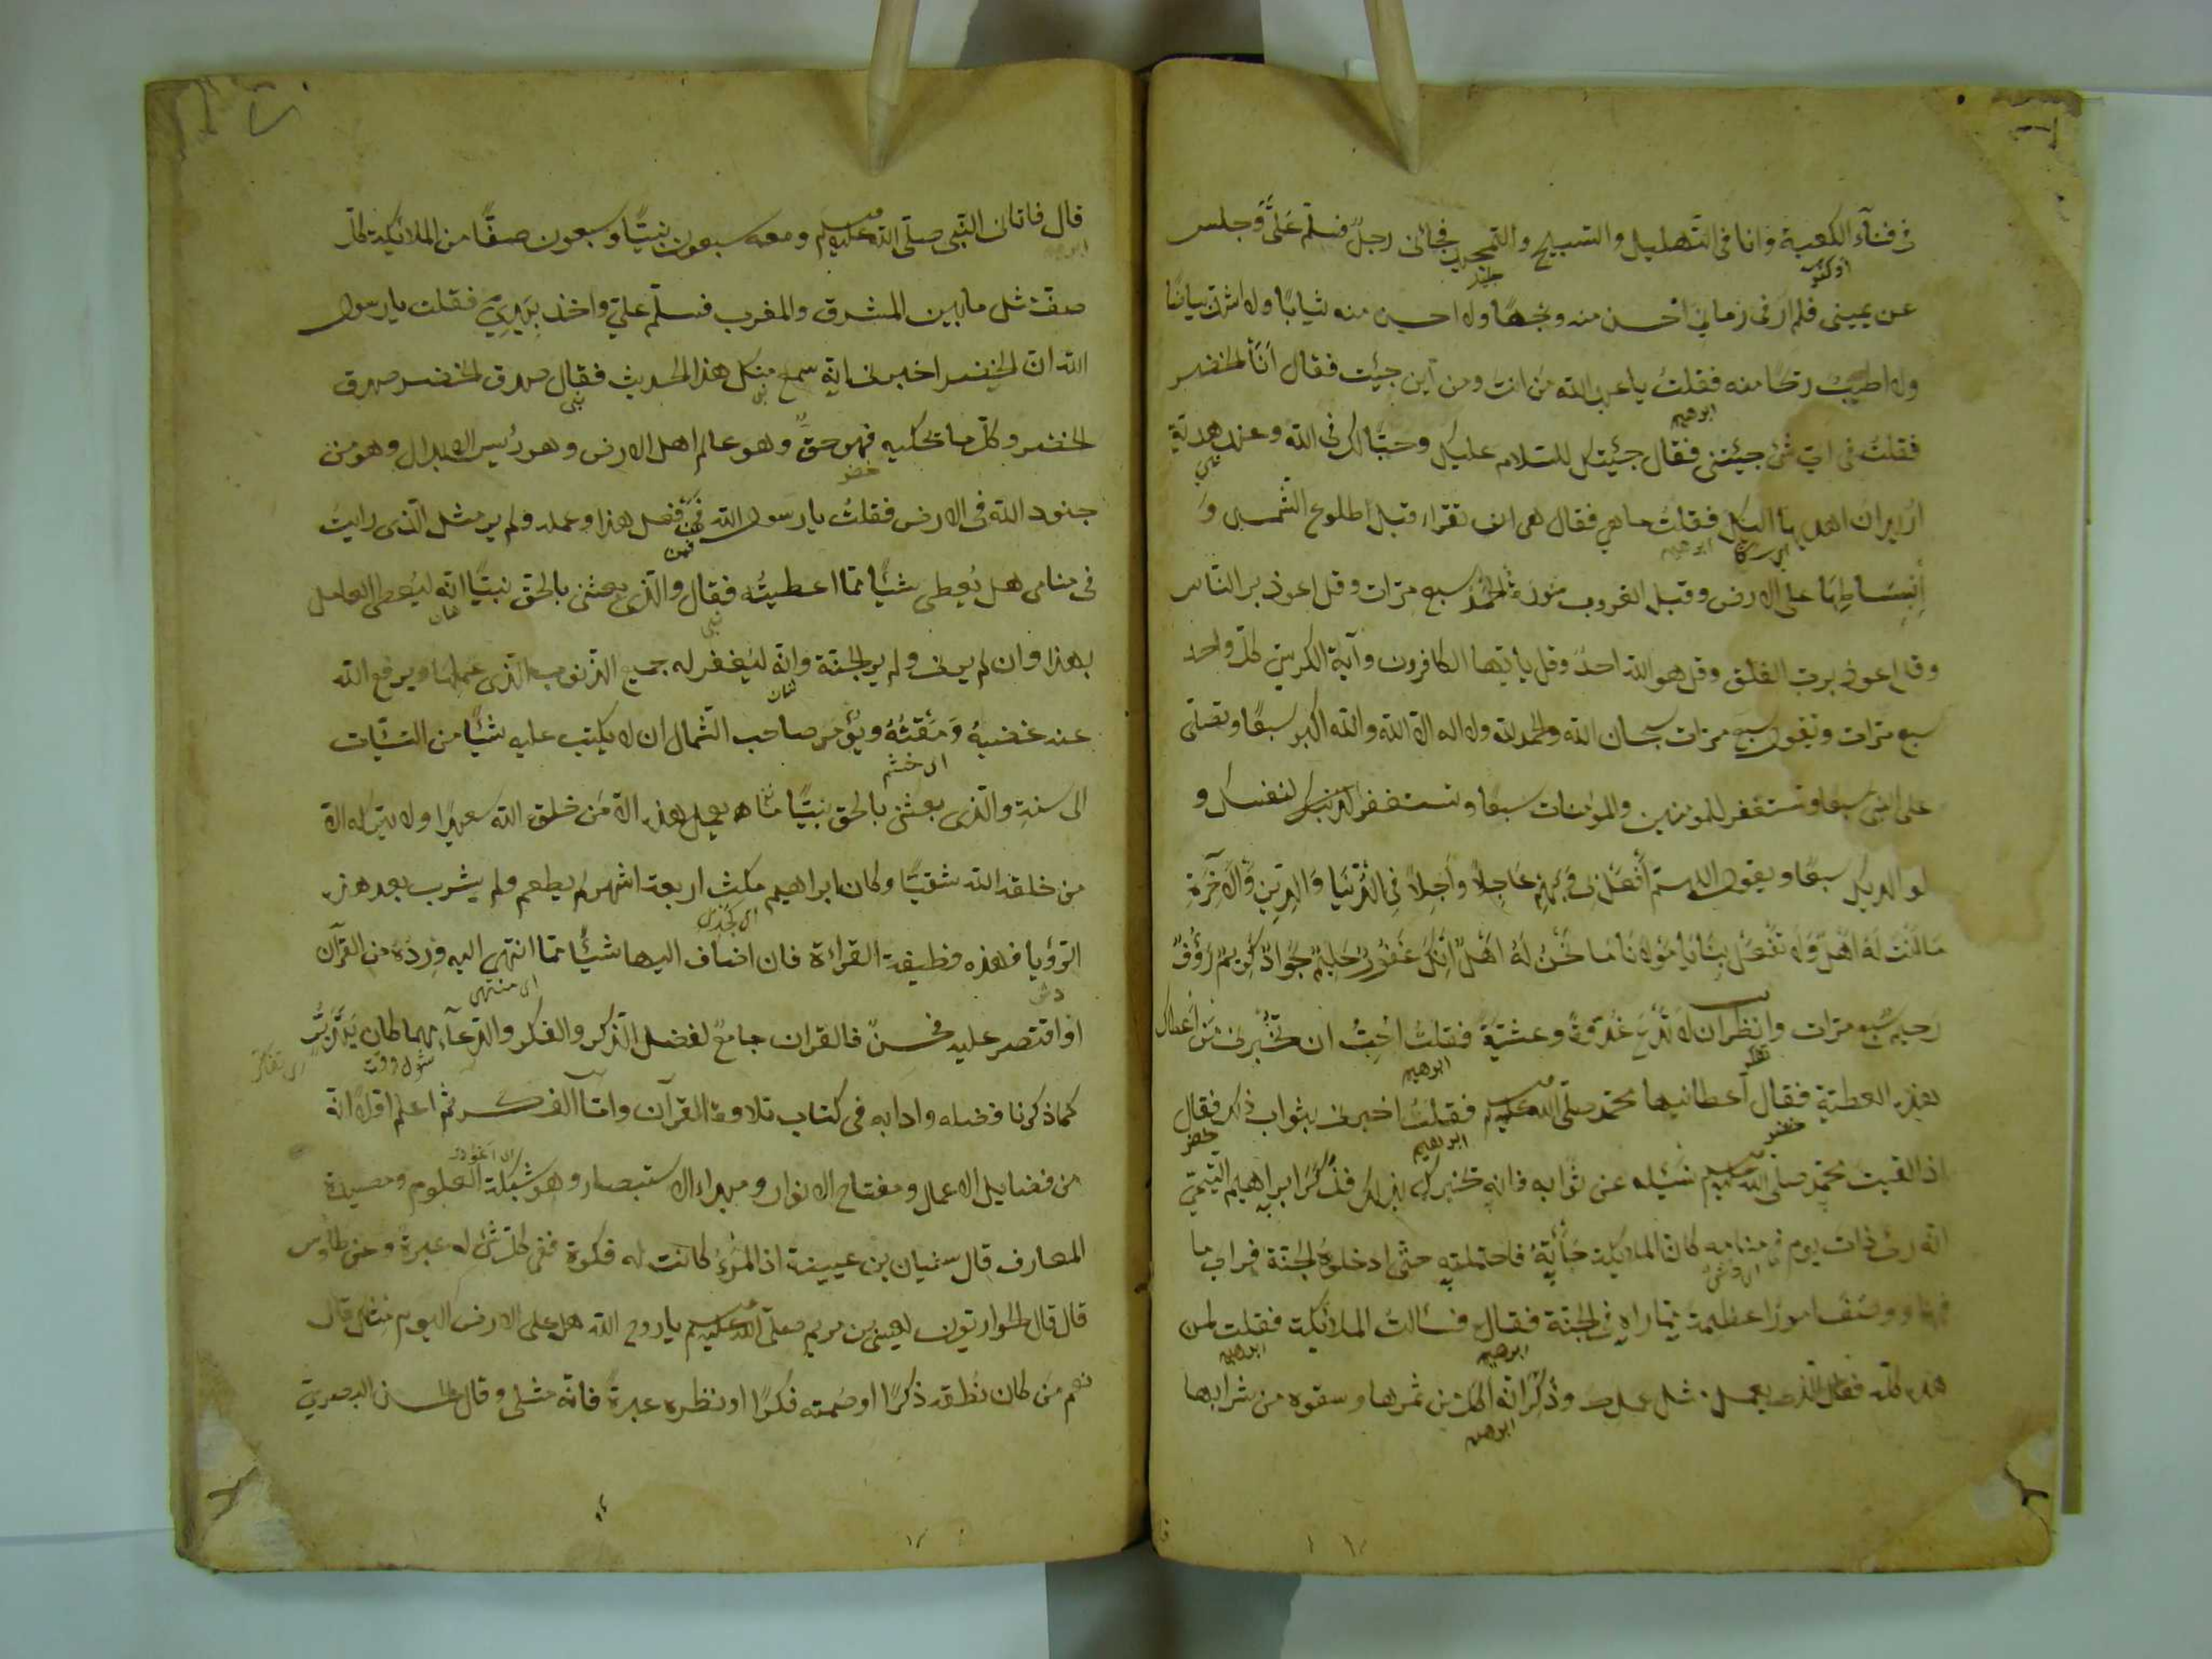 فى فنآء الكعبة وانا فى التهليل والتسبيح والتمجيد فجائنى رجل فسلّم علىَّ وجلس
عن يمينى فلم ار فى زمانى احسن منه وجهًا ولا احسن منه ثيابًا ولا اشدّ بياضًا
ولا اطيبَ ريحًا منه فقلتُ يا عبد الله من انتَ ومن أين جيئت فقال أنَا الخضر
فقلتُ فى اىّ شئ جيئتنى فقال جيئتك للسّلام عليك وحبّا لك فى الله وعندى هديّة
اريد ان اهديها اليك فقلتُ ما هي فقال هى ان تقراء قبل طلوع الشّمس وَ
اِنبِسَاطِهَا على الارض وقبل الغروب سُورة الحمدُ سبع مرّات وقل اعوذ برب النّاس
وقل اعوذ بربّ الفلق وقل هو الله احدٌ وقل يا ايّها الكافرون وآية الكرسيّ كلّ واحد
سبع مرّات وتقول سبع مرّات سبحان الله والحمد لله ولا اله الا الله والله اكبر سبعًا وتصلّى
على النبى سبعًا وتستغفر للمؤمنين والمؤمنات سبعًا وتستغفر لنفسك و
لوالديك سبعًا ويقول اللهمّ أفعَل بى وَبِهِم عَاجِلاً وآجِلاً فِى الدُّنيَا وَالدِّينِ وَالآخِرَةِ
مَا اَنْتَ لَهُ اَهْلٌ وَلَا تَفْعَل بِنَا يَا مَوْلَانَا مَا نَحْنُ لَهُ اَهْلٌ اِنَّكَ غَفُورٌ حَلِيمٌ جَوَادٌ كَرِيمٌ رَؤُفٌ
رَحِيمٌ سبع مرّات وانظر ان لا تَدَعَ غُدْوَةً وعشيّةً فقلتُ اُحِبُّ ان تُخْبِرَنى مَن أعطاك
هذه العطيّة فقال أعطانيها محمّد صلّى الله عليه وسلم فقلتُ اخبرنى بثواب ذلك فقال
اذا لقيت محمّد صلى الله عليه وسلم فسَئَله عن ثوابه فانّه يخبرك بذلك فذكَرَ ابراهيم التّيمىّ
انّه رأى ذات يوم فى منامه كانّ الملائكة جَأَتْهُ فاحتملته حتّى ادخلوهُ الجنّة فراى ما
فيها ووصَفَ امورًا عظيمة ممّا راه فى الجنّة فقال فسالت الملائكة فقلت لمن
هذا كلّه فقال للّذى يعمل مثل عملك وذكَرَ انّه اكل من ثمرها وسقوه من شرابها
قال فاتانى النّبى صلّى الله عليه وسلم ومعه سبعون نبيّا وسبعون صفًا من الملائكة كلّ
صفّ مثل ما بين المشرق والمغرب فسلّم عليّ واخذ بيديّ فقلت يا رسول
الله انّ الخضر اخبرنى انه سمع منك هذا الحديث فقال صدق الخضر صدق
الخضر وكلّ ما تحكيه فهو حقٌّ وهو عالم اهل الارض وهو رئيس الابدال وهو من
جنود الله فى الارض فقلتُ يا رسول الله فمن فعل هذا وعمله ولم ير مثل الّذى رايتُ
فى منامى هل يُعطى شيئًا ممّا اعطيتُه فقال والّذى بعثنى بالحق نبيّا انّه ليُعطى العامل
بهذا وان لم يرنى ولم ير الجنّة وانّه ليُغفر له جميع الذّنوب الّذى عملها ويرفع الله
عنه غضبهُ وَمَقْتَهُ ويُؤمَر صاحب الشّمال ان لا يكتب عليه شيئًا من السّيّئات
الى سنة والّذى بعثنى بالحق نبيّا ما يعمل بهذا الاّ مَن خلقه الله سعيدًا ولا يتركه الاّ
من خلقه الله شقيّا وكان ابراهيم مكث اربعة اشهر لم يطعم ولم يشرب بعد هذه
الرّؤيا فهذه وظيفة القرائة فان اضاف اليها شيئًا ممّا انتهى اليه وِرده من القرآن
او اقتصر عليه فحسنٌ فالقران جامعٌ لفضل الذّكر والفكر والدّعآء مهما كان بِتَدَبُّر
كما ذكرنا فضله وادابه فى كتاب تلاوة القرآن وامّا الفكر ثم اعلم اوّلاً انّه
من فضايل الاعمال ومفتاح الانوار ومبداء الاستبصار وهو شبكة العلوم ومصيدة
المعارف قال سفيان بن عيينة اذا المَرْءُ كانت له فكرة ففى كلّ شئ له عبرةٌ وعن طاوُس
قال قال الحواريّون لعيسى بن مريم صلى الله عليه وسلم يا روح الله هل على الارض اليوم مثلك قال
نعم مَن كان نُطقه ذكرًا او صَمته فكرًا او نظره عبرةً فانّه مثلى وقال الحسن البصرىّ